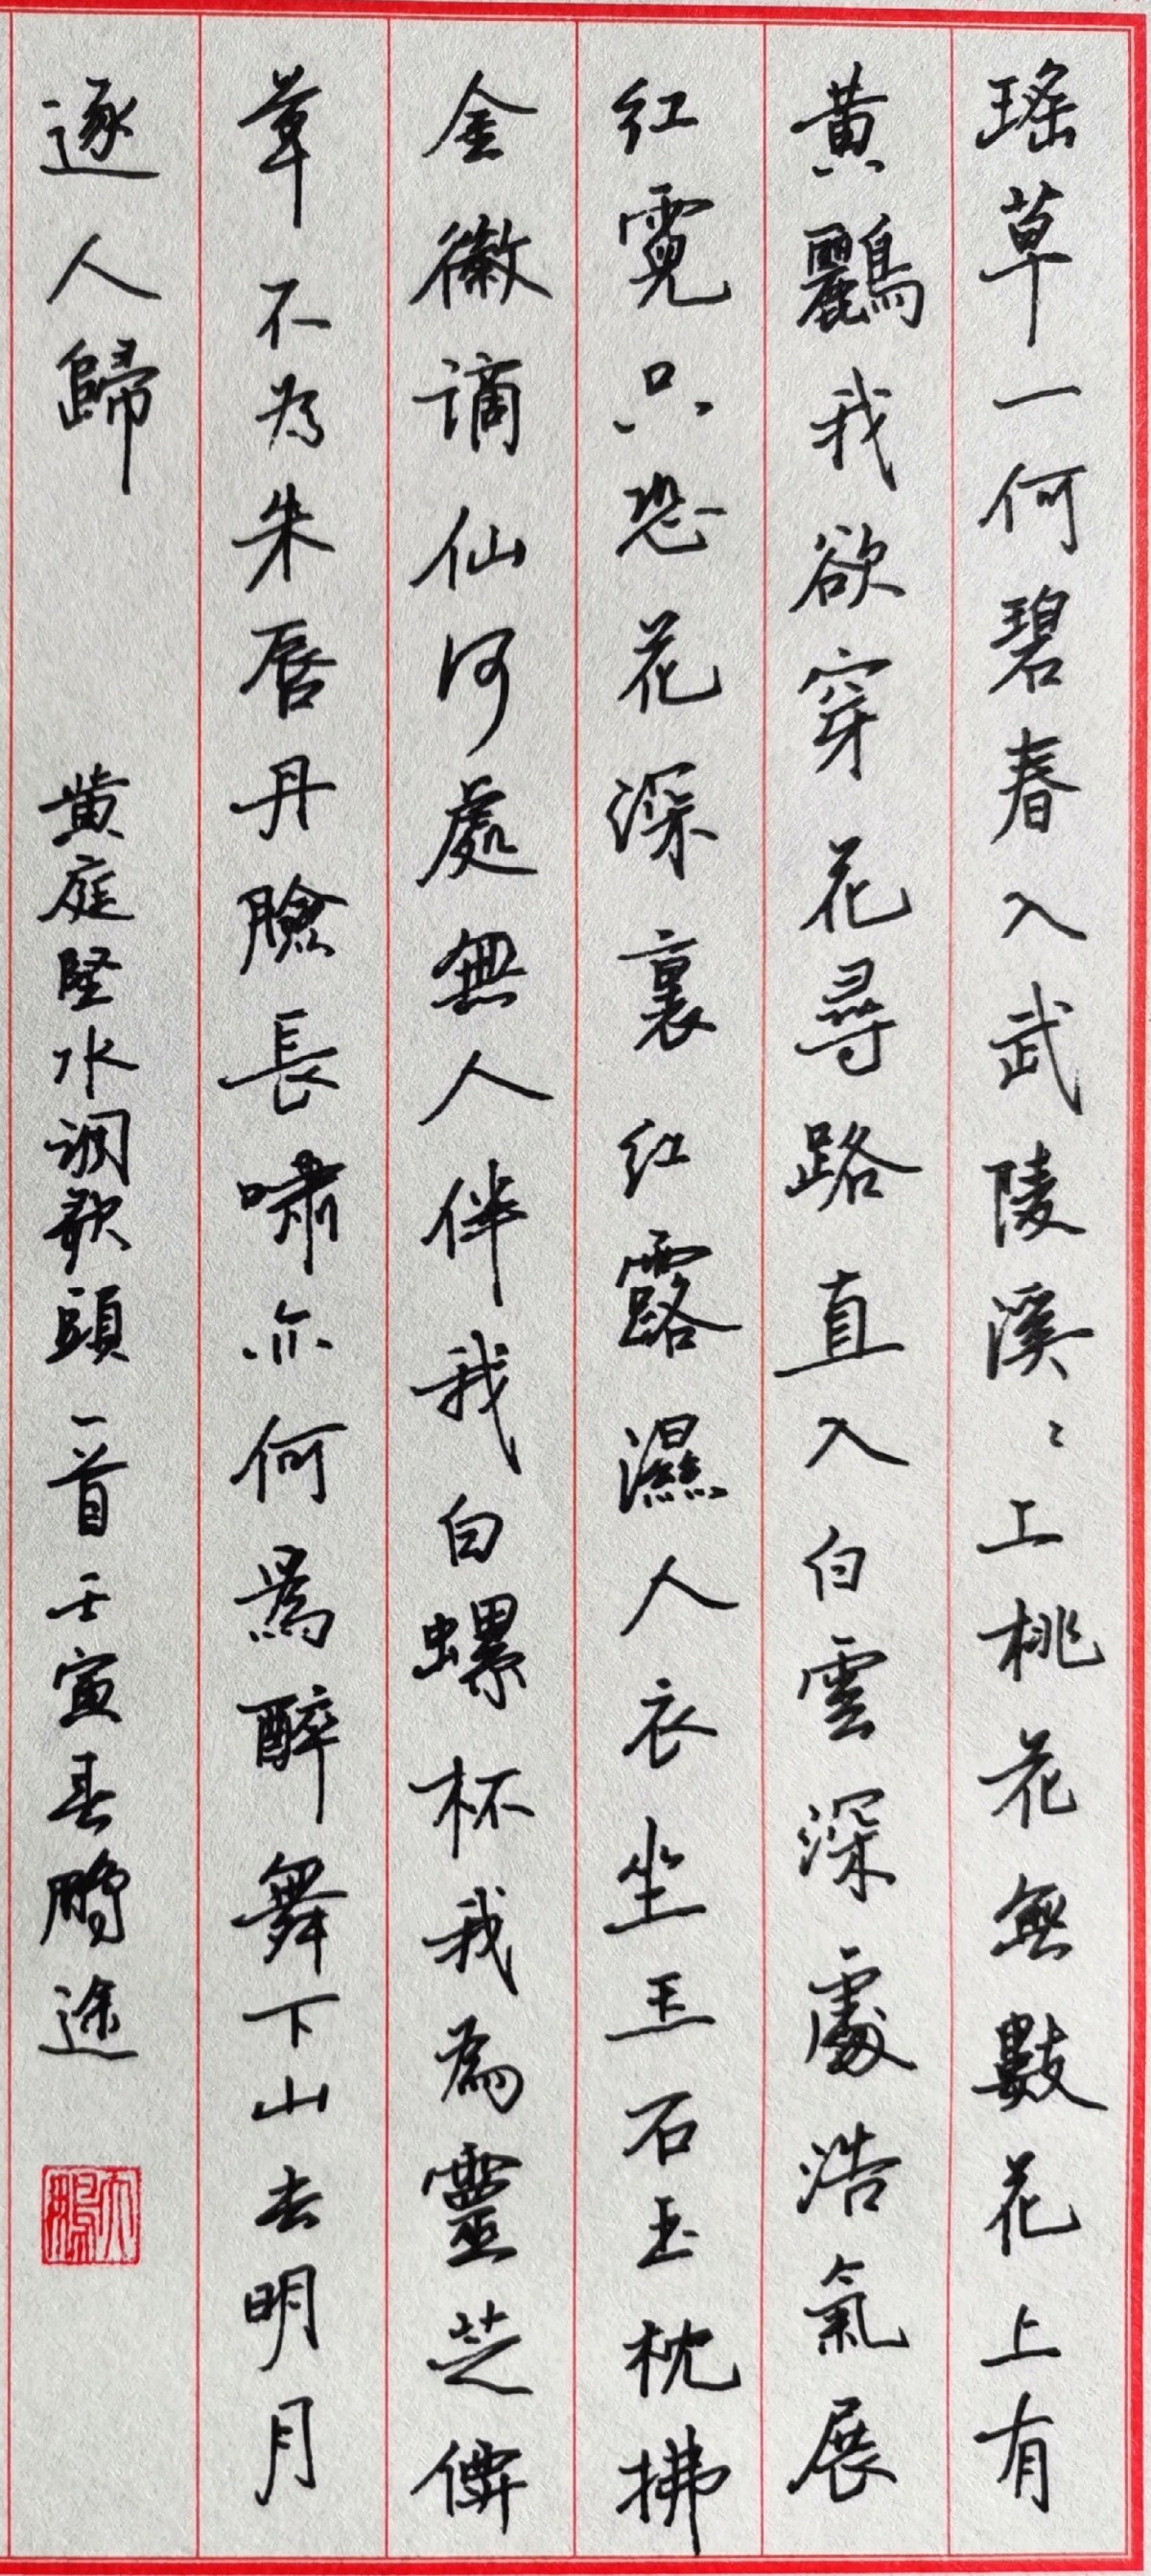 瑤草一何碧春入武陵溪〻上桃花無數花上有
黃鸝我欲穿花尋路直入白雲深處浩氣展
紅霓只恐花深裏紅露濕人衣坐玉石玉枕拂
金徽謫仙何處無人伴我白螺杯我為靈芝僊
草不為朱唇丹臉長嘯亦何為醉舞下山去明月
逐人歸
黃庭堅水調歌頭一首壬寅春鵬途
天鵬